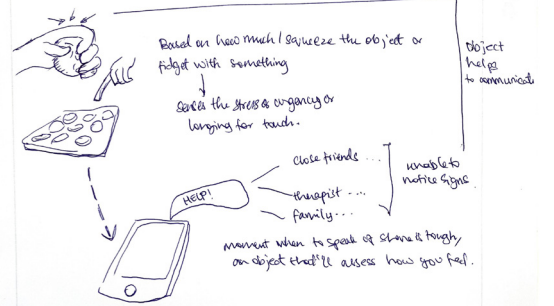 Based on how much I squeeze the object or
fidget with something
senses the stress or urgency or
longing for touch.
object
helps
to communicate
HELP!
close friends ...
therapist ....
family ...
unable to
notice signs.
moment when to speak or share is tough,
an object that'll assess how you feel.